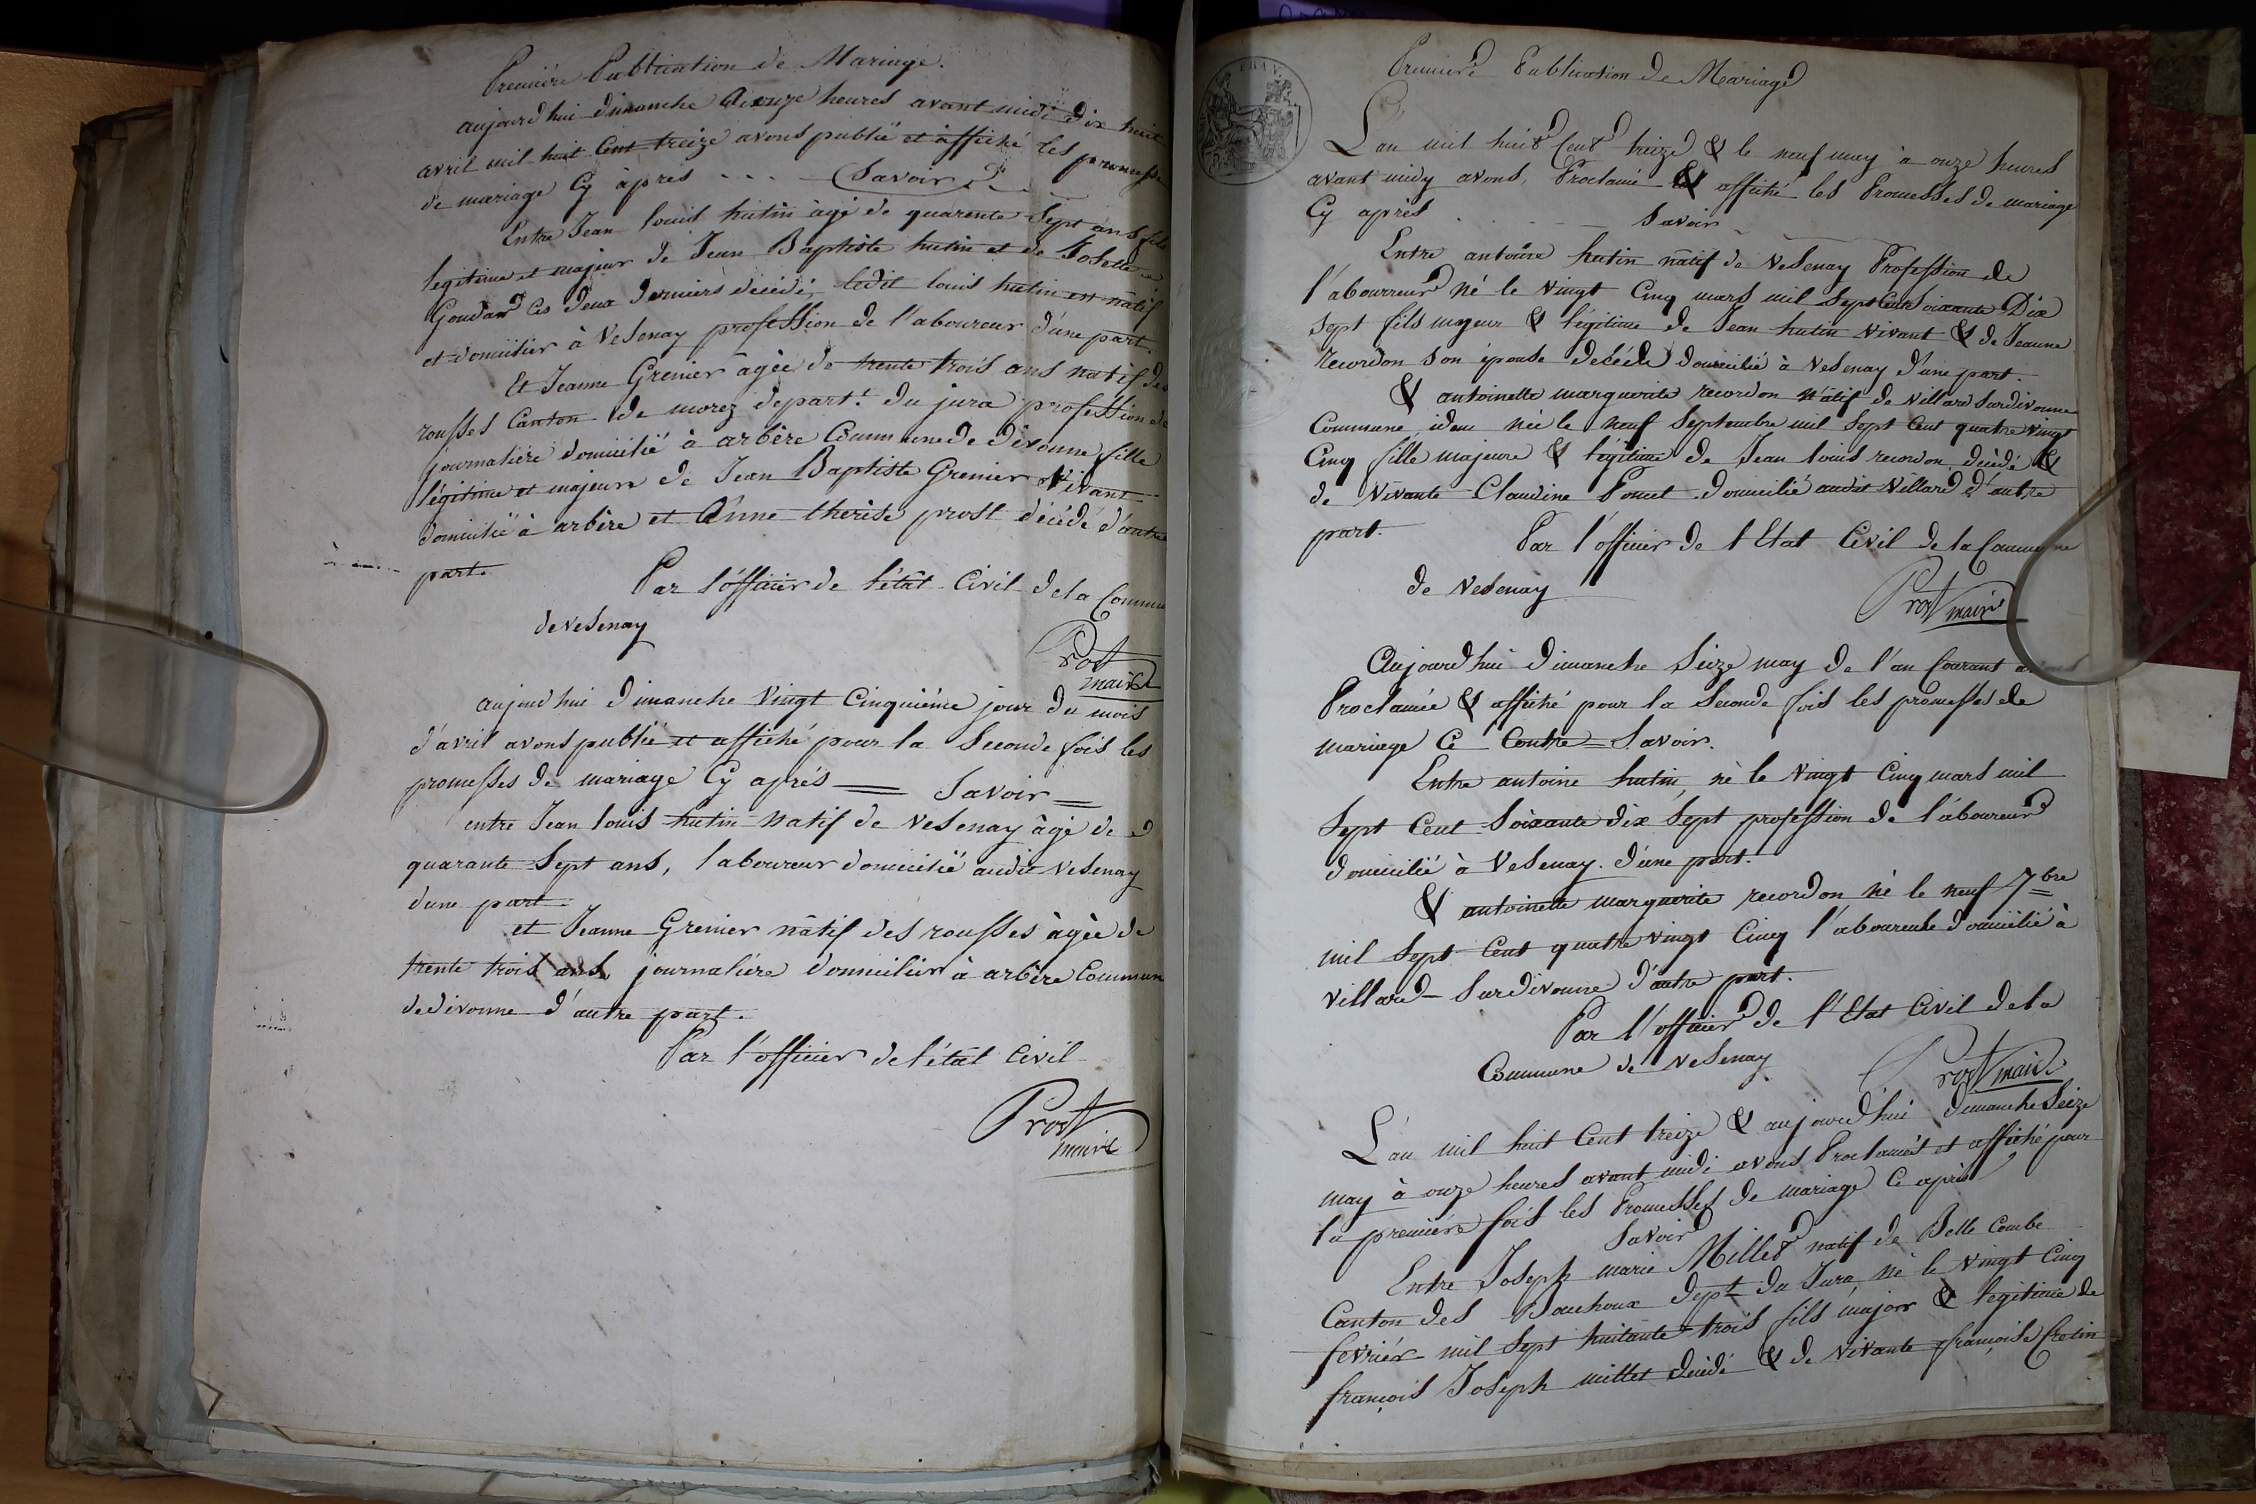 Première Publication de Mariage.
aujourdhui dimanche à onze heures avant midi dix huit
avril mil huit Cent treize avons publié et affiché les promesse
de mariage Cy après . . . . Savoir
Entre Jean louis hutin âgé de quarente Sept ans fils
legitime et majeur de Jean Baptiste hutin et de Josette
Goudard Ces deux derniers décédé, ledit louis hutin est nâtif
et domicilier à Vesenay profession de l'aboureur d'une part.
Et Jeanne Grenier âgée de trente trois ans natif des
rousses Canton de morez départ.t du jura profession de
journalière domicilié à arbère Commune de divonne fille
légitime et majeure de Jean Baptiste Grenier Vivant
domicilié à arbère et Anne therèse prost décédé d'autre
part.
Par l'officier de l'état Civil de la Commune
de Vesenay
Prost
maire
aujourdhui dimanche Vingt Cinquième jour du mois
d'avril avons publié et affiché pour la Seconde fois les
promesses de mariage Cy après = Savoir =
entre Jean louis hutin natif de Vesenay âgé de
quarante Sept ans, laboureur domicilié audit Vesenay
dune part.
et Jeanne Grenier nâtif des rousses âgée de
trente trois ans, journalière domicilier à arbère Commune
de divonne d'autre part.
Par l'officier de l'état Civil
Prost
maire
Première Publication de Mariage
L'an mil huit Cent treize & le neuf may à onze heures
avant midy avons, Proclamé & affiché les Promesses de mariage
Cy après . . . . Savoir
Entre antoine hutin nâtif de Vesenay Profession de
l'abourreur né le Vingt Cinq mars mil Sept Cent Soixante Dix
Sept fils majeur & légitime de Jean hutin Vivant & de Jeanne
recordon Son épouse décédé domicilié à Vesenay d'une part.
& antoinette marguerite recordon nâtif de Villard Surdivonne
Commune idem née le neuf Septembre mil Sept Cent quatre Vingt
Cinq fille majeure & légitime de Jean louis recordon décèdé &
de Vivante Claudine Poncet domicilié audit Villard d'autre
part.
Par l'officier de l'Etat Civil de la Commune
de Vesenay
Prost maire
Aujourdhui dimanche Seize may de l'an Courant
Proclamée & affiché pour la Seconde fois les promesses de
mariage Ci Contre = Savoir.
Entre antoine hutin, né le Vingt Cinq mars mil
Sept Cent Soixante dix Sept profession de l'aboureur
domicilié à Vesenay. d'une part.
& antoinette marguerite recordon né le neuf 7bre
mil Sept Cent quatre Vingt Cinq l'aboureuse domicilié à
Villard – Surdivonne d'autre part.
Par l'officier de l'Etat Civil de la
Commune de Vesenay
Prost maire
L'an mil huit Cent treize & aujourd'hui dimanche Seize
may à onze heures avant midi avons Proclamés et affiché pour
la première fois les Promesses de mariage Ci après
Savoir
Entre Joseph marie Millet natif de Belle Combe
Canton des Bouchoux dept du Jura, né le Vingt Cinq
fevriér mil Sept huitante trois fils major & legitime de
françois Joseph millet décédé & de Vivante françoise Cretin